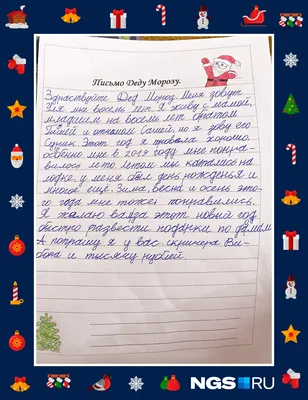 Письмо Деду Морозу.
Здраствуйте Дед Мороз. Меня зовут
мне восемь лет. Я живу с мамой,
младшим на восемь лет братом
и отчимом Сашей, но я зову его
Этот год я провела хорошо.
особенно мне в 2019 году мне понра-
вилось лето. Летом мы катались на
лодке, у меня был день рожденья и
многое ещё. Зима, весна и осень это-
го года мне тоже понравились.
Я желаю вам в этот новый год
быстро развести подарки по домам
А попрошу я у вас скринчера Ви-
бона и тысячу рублей.
NGS RU